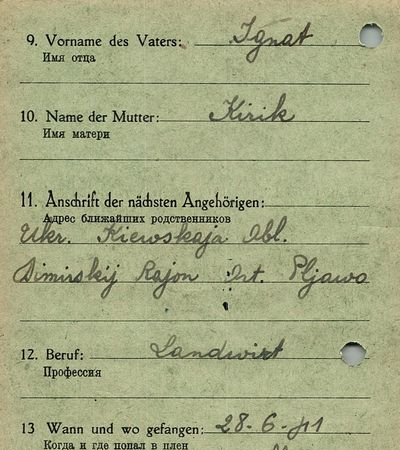 9. Vorname des Vaters: Ignat
Имя отца
10. Name der Mutter: Kirik
Имя матери
11. Anschrift der nächsten Angehörigen:
Адрес ближайших родственников
Ukr. Kiewskaja Obl.
Dimirskij Rajon Ort. Pljawo
12. Beruf: Landwirt
Профессия
13 Wann und wo gefangen: 28-6-41
Когда и где попал в плен